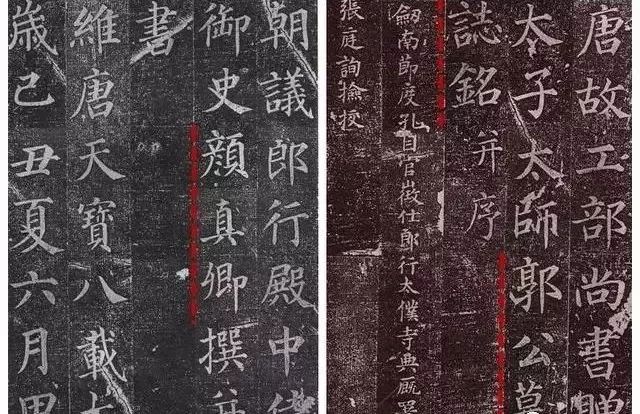 唐故工部尚書贈
太子太師郭公墓
誌銘并序
劔南節度孔目官徵仕郎行太僕寺典厩署
張庭詢撿挍
朝議郎行殿中侍
御史顏真卿撰并
書
維唐天寶八載
歲己丑夏六月甲